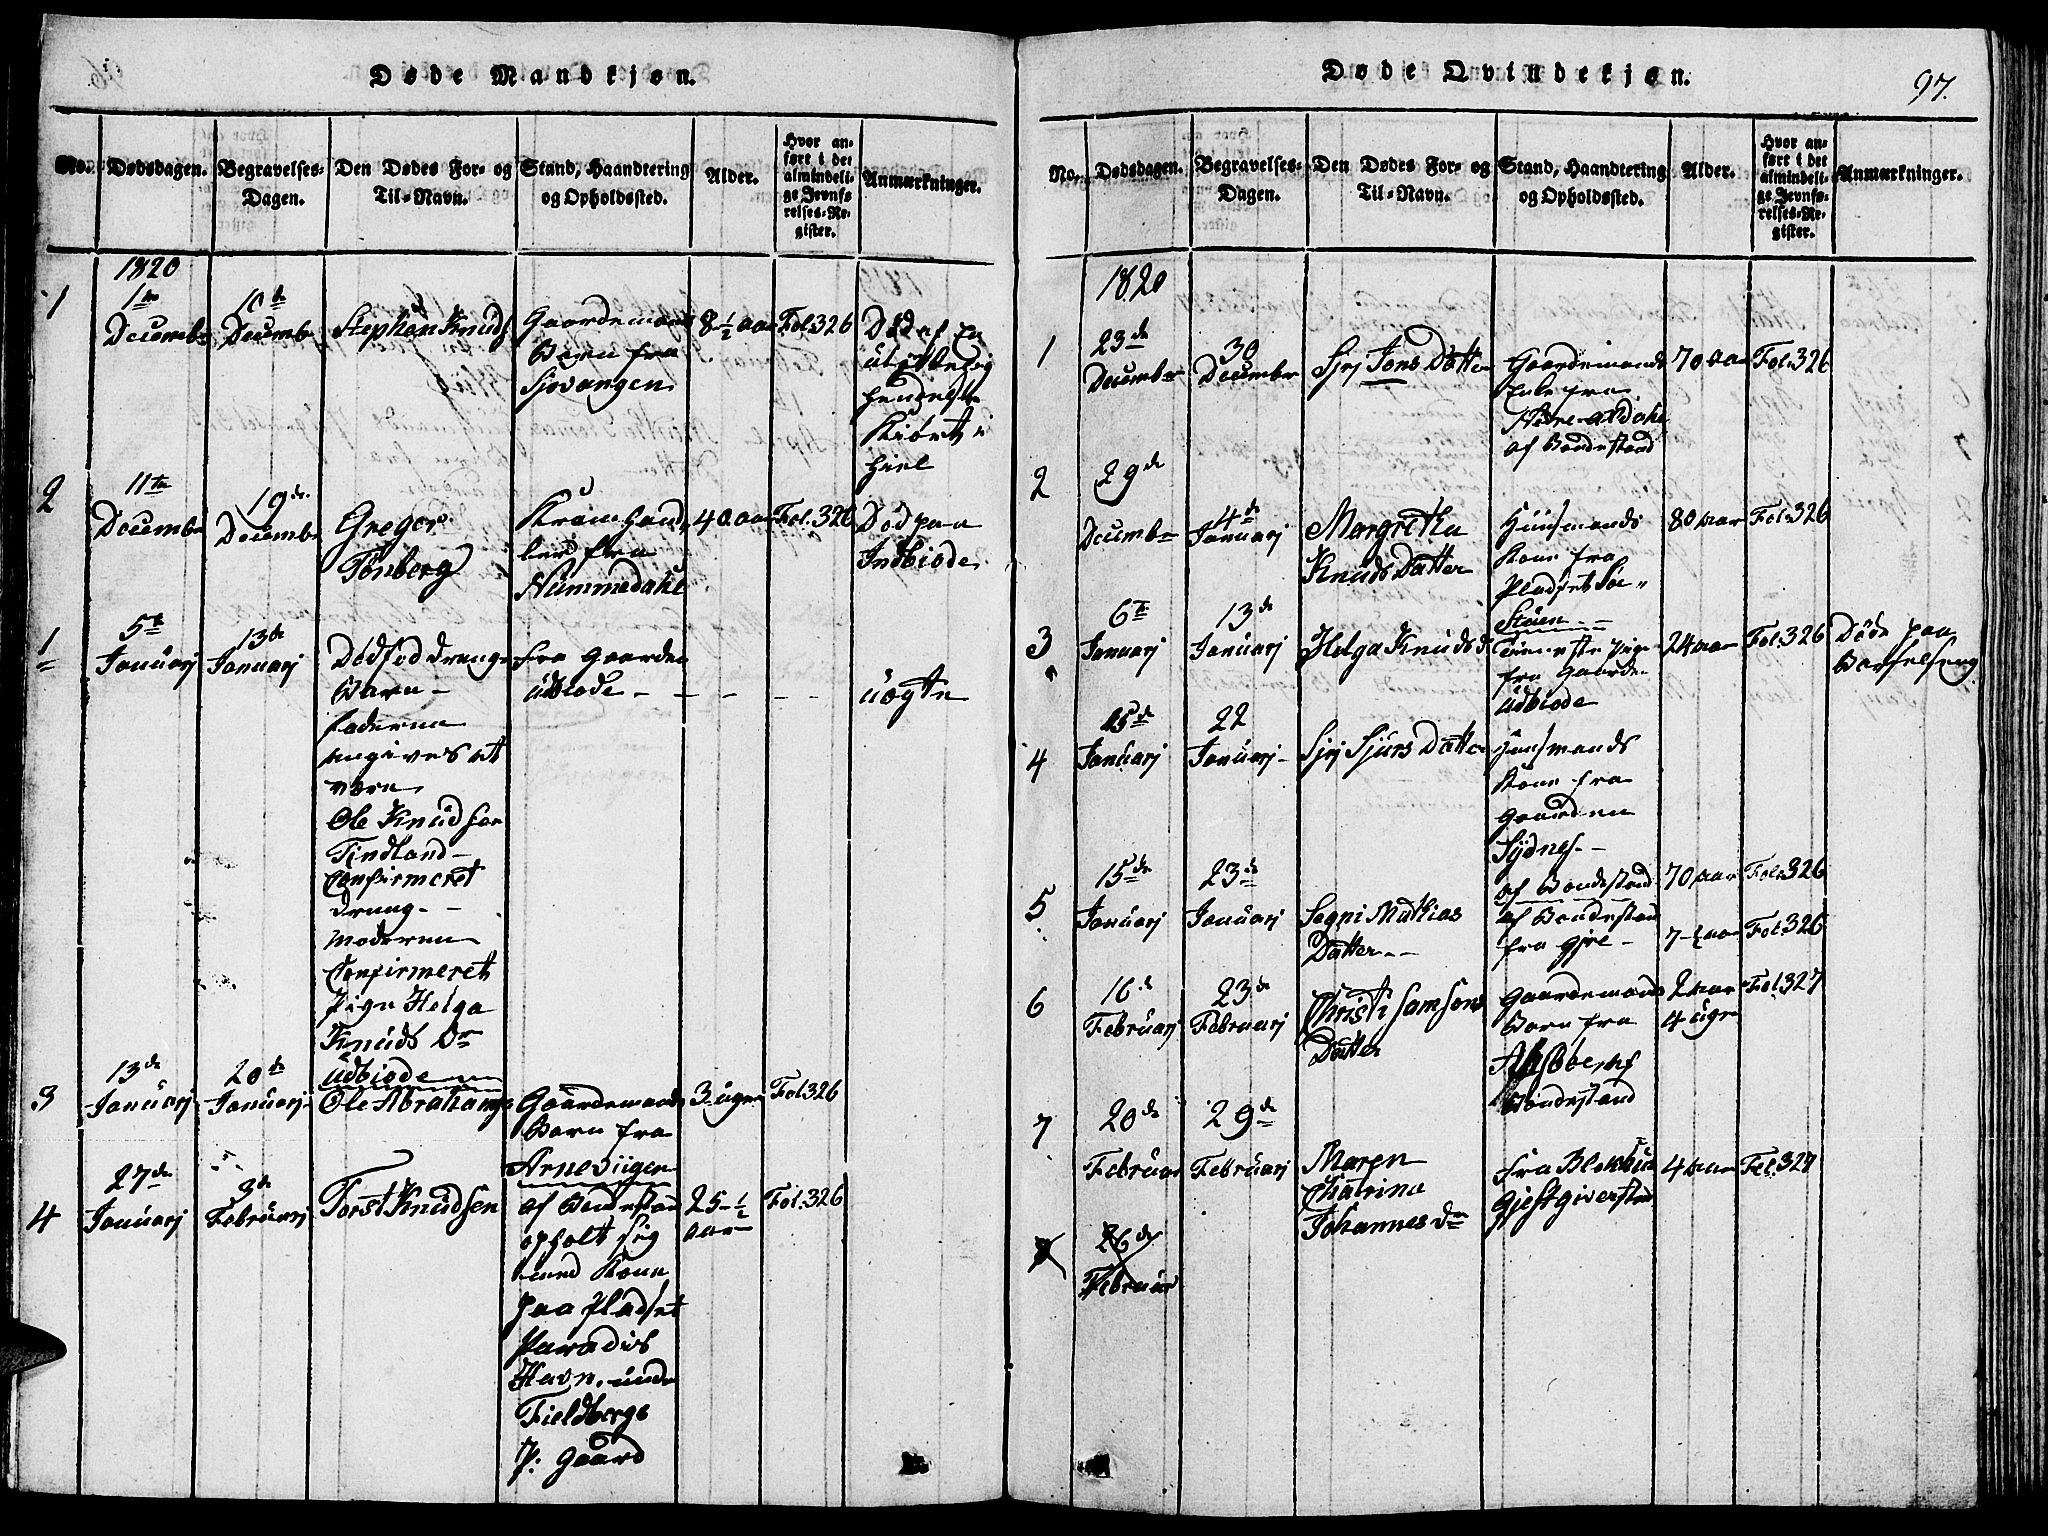 Døde Mandkjøn.
No.
Dødsdagen.
Begravelses-
Dagen.
Den Dødes For- og
Til-Navn.
Stand, Haandtering
og Opholdssted.
Alder.
Hvor an-
ført i det
almindeli-
ge Jevnfø-
relses-Re-
gister.
Anmærkninger.
1820
1
1te
Decembr
10de
Decembr
Stephan Knuds
Gaardemands
Barn fra
Sjovangen
8 ½ aar
Fol. 326
Død af En
Hendelse
Kiørt i
Hiel
2
11te
Decembr
19de
Decembr
Gregor
Tonberg
Kram Hand
ler fra
Nummedahl
40 aar
Fol. 326
Død paa
Indbiode
1
5te
Januarj
13de
Januarj
Dødfød Drenge
Barn
faderen
angives at
være
Ole Knudsen
Tindland
Confirmeret
Dreng
Moderen
Confirmeret
Pige Helga
Knuds Dr
Udbiode
fra Gaarden
Udbiode
uægte
3
13de
Januarj
20de
Januarj
Ole Abrahams
Gaardemands
Barn fra
Arneviigen
3 uger
Fol. 326
4
27de
Januarj
3de
Februarj
Torst Knudsen
af Bondestand
opholt sig
med Kone
paa Pladset
Paradis
Havn under
Fieldbergs
P: Gaard
25 ½
aar
Fol. 326
Døde Qvindekjøn.
97.
No.
Dødsdagen.
Begravelses-
Dagen.
Den Dødes For- og
Til-Navn.
Stand, Haandtering
og Opholdssted.
Alder.
Hvor an-
ført i det
almindeli-
ge Jevnfø-
relses-Re-
gister.
Anmærkninger.
1820
1
23de
December
30
December
Sjrj Jons Datter
Gaardemands
Enke fra
af Bondestand
70 aar
Fol. 326
2
29de
Decembr
4de
Januarj
Margretha
Knuds Datter
Huusmands
Kone fra
Pladset Sæ-
Støen
80 aar
Fol. 326
3
6te
Januarj
13de
Januarj
Helga Knuds d
Tieneste Pige
fra Gaarde
Udbiode
24 aar
Fol. 326
Døde paa
Barselseng
4
15de
Januarj
22
Januarj
Sjrj Sjurs Datter
Huusmands
Kone fra
Gaarden
Sydnes
af Bondestand
70 aar
Fol. 326
5
15de
Januarj
23de
Januarj
Segni Mathias
Datter
af Bondestand
fra Gjre
7 ½ aar
Fol. 326
6
16de
Februarj
23de
Februarj
Christi Samsons
Datter
Gaardemands
Barn fra
Bondestand
2 aar
4 uger
Fol. 327
7
20de
Februar
29de
Februarj
Maren
Chatrina
Johannes Dr
fra Blekhue
Gjestgiversted
4 aar
Fol. 327
8
26de
Februar